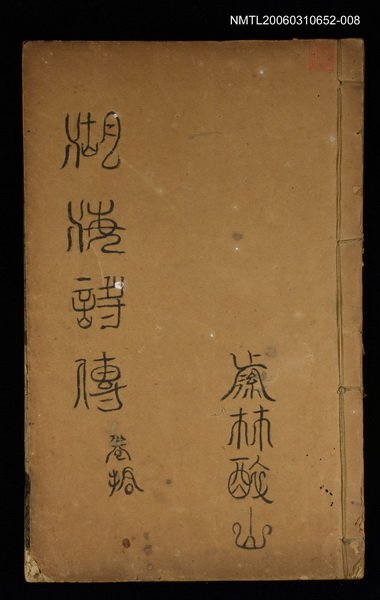 NMTL20060310652-008
湖海詩傳
卷拾
林酸山